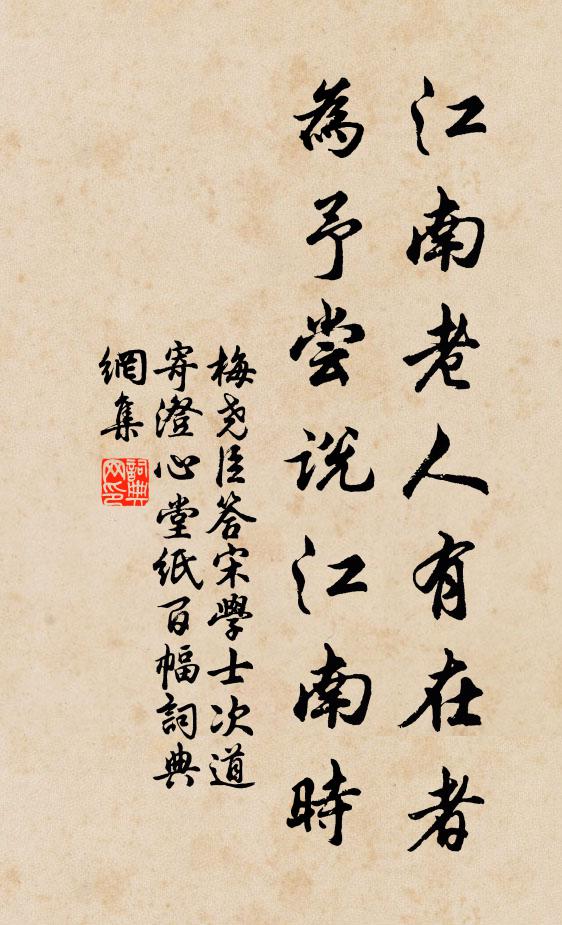 江南老人有在者
為予嘗說江南時
梅堯臣答宋學士次道
寄澄心堂紙百幅詞典
網集
詞典
网印